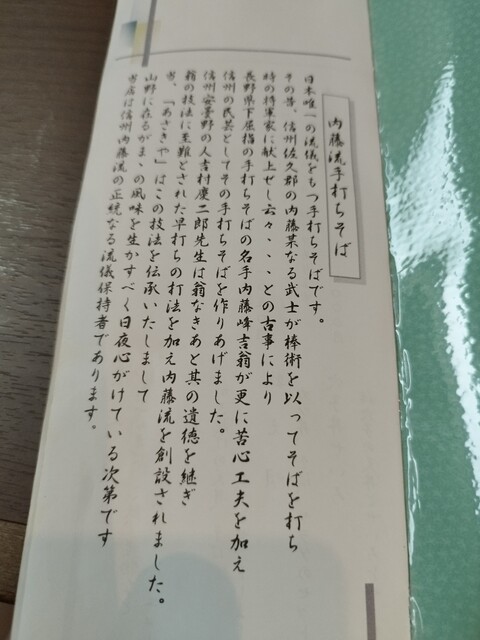 内藤流手打ちそば
日本唯一の流儀をもつ手打ちそばです。
その昔、信州佐久郡の内藤某なる武士が棒術を以ってそばを打ち
時の将軍家に献上せし云々、、、との古事により
長野県下屈指の手打ちそばの名手内藤峰吉翁が更に苦心工夫を加え
信州の民芸としてその手打ちそばを作りあげました。
信州安曇野の人吉村慶二郎先生は翁なきあと其の遺徳を継ぎ
翁の技法に至難とされた早打ちの打法を加え内藤流を創設されました。
当、「あさきや」はこの技法を伝承いたしまして
山野に在るがまゝの風味を生かすべく日夜心がけている次第です
当店は信州内藤流の正統なる流儀保持者であります。